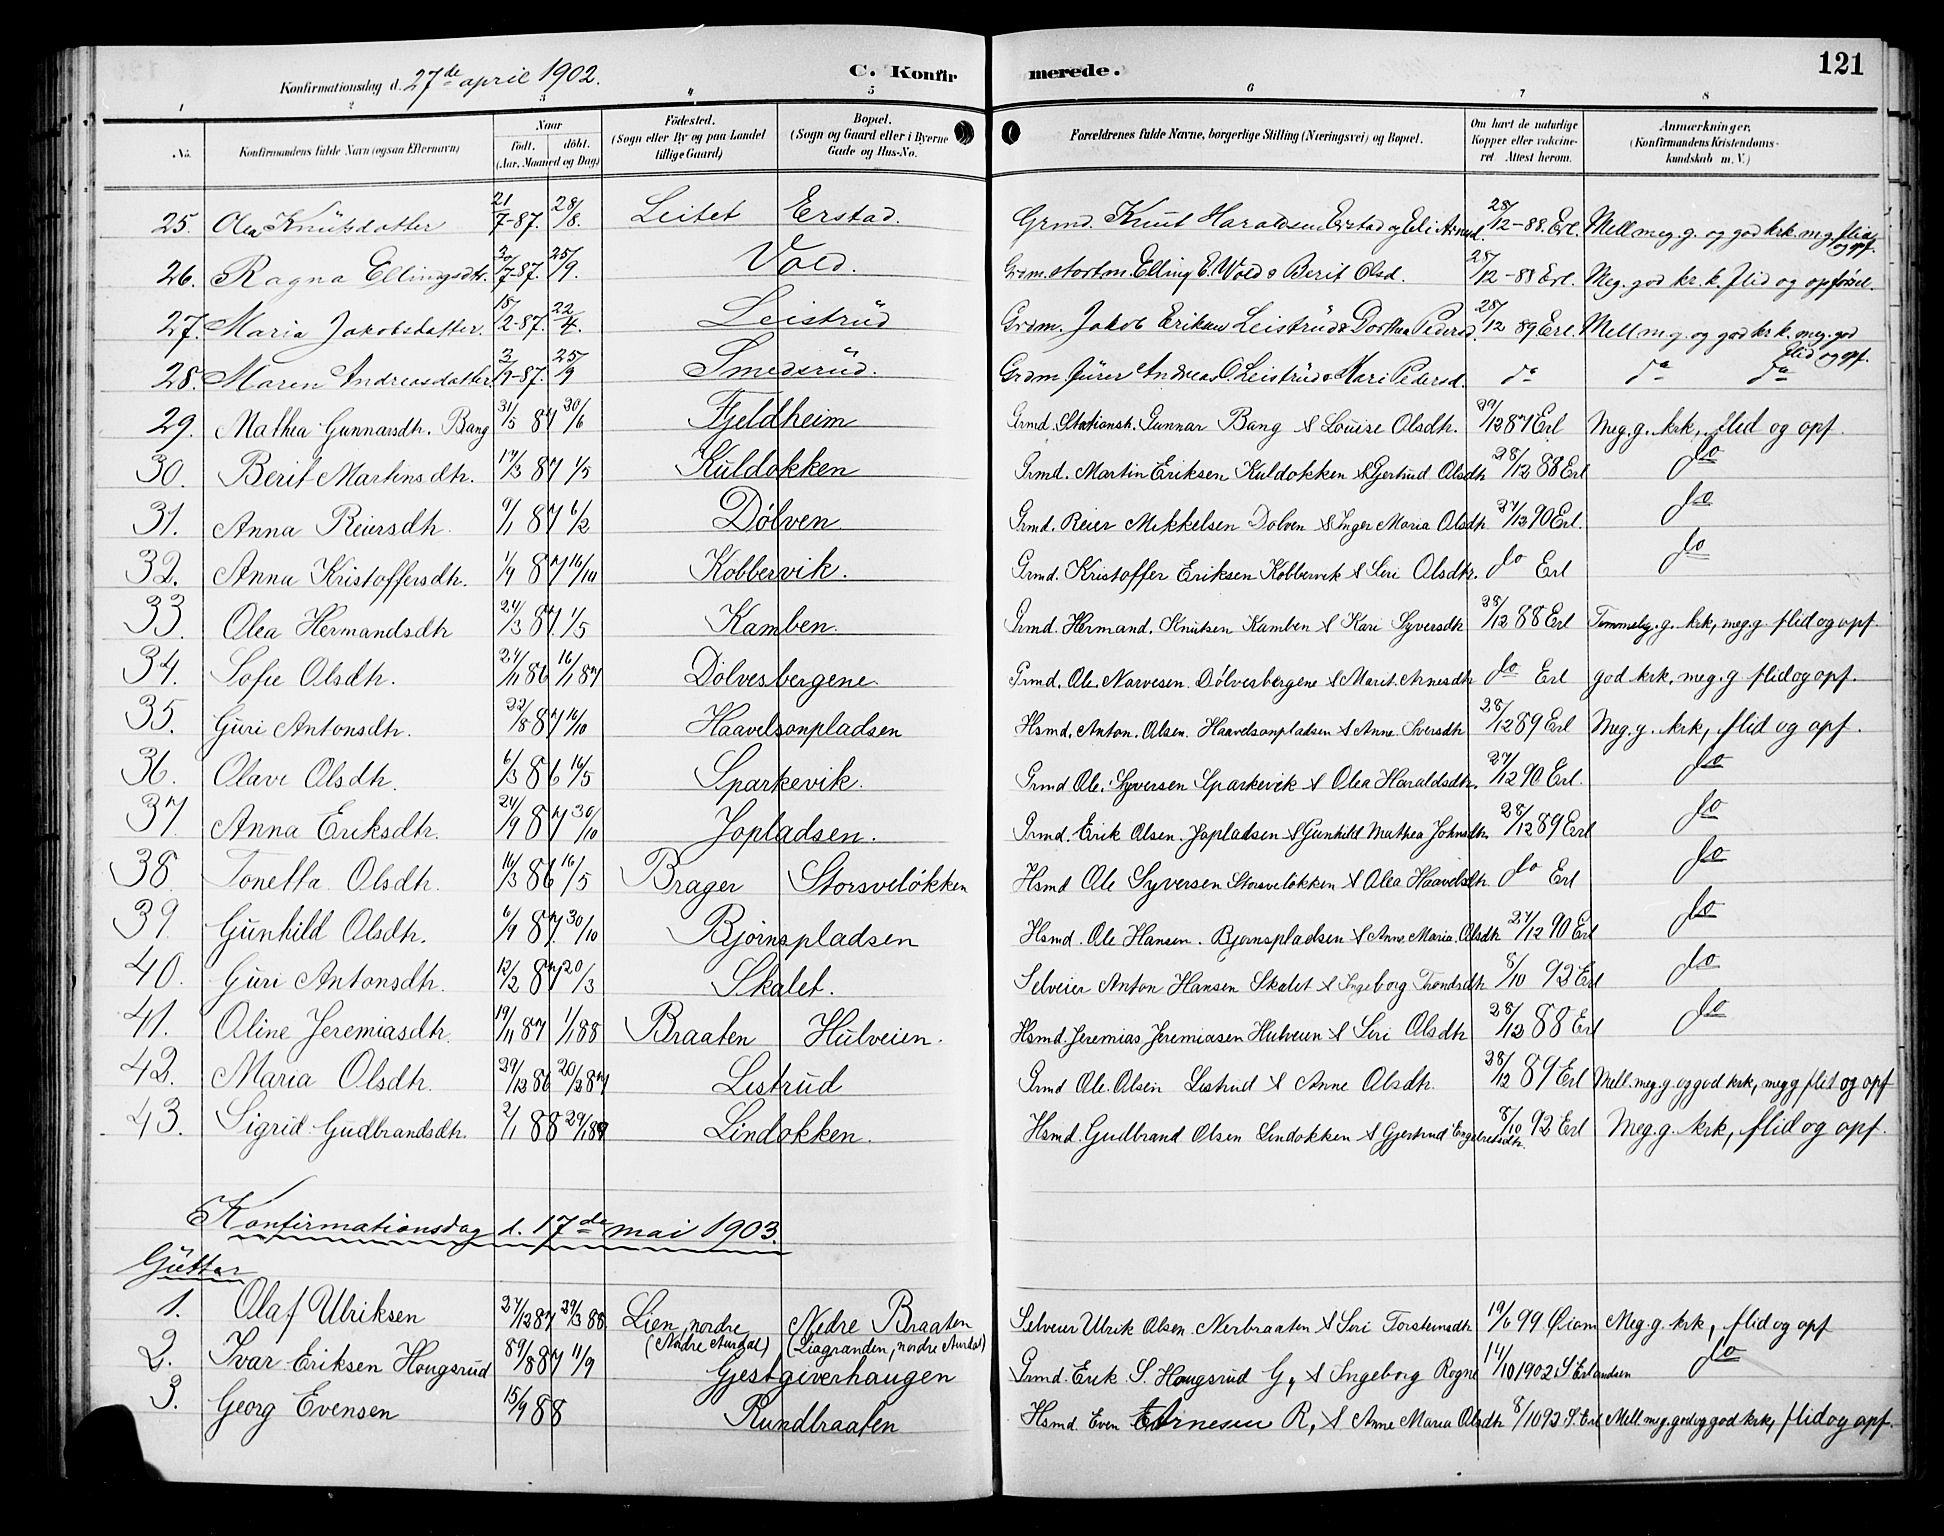 121
Konfirmationsdag d. 27de april 1902. C. Konfirmerede.
1 2 3 4 5 6 7 8
No. Konfirmandens fulde Navn (ogsaa Efternavn) Naar födt. döbt. (Aar, Maaned og Dag) Födested. (Sogn eller By og paa Landet tillige Gaard) Bopæl. (Sogn og Gaard eller i Byerne Gade og Hus-No. Forældrenes fulde Navne, borgerlige Stilling (Næringsvei) og Bopæl. Om havt de naturlige Kopper eller vakcineret. Attest herom. Anmærkninger. (Konfirmandens Kristendomskundskab m. V.)
25. Olea Knutsdatter 21/7-87. 28/8. Leitet Erstad. Grmd. Knut Haraldsen Erstad og Eli Arnesd. 28/12-88. Erl. Mell meg. g. og god krk. m g. flid og opf.
26. Ragna Ellingsdtr. 20/7-87. 25/9. Vold. Grdm. Elling E. Wold & Berit Olsd. 28/12-88 Erl. Meg. god kr. k. flid og opførsel.
27. Maria Jakobsdatter. 18/2-87. 22/4. Leistrud Grdm. Jakob Eriksen Leistrud & Dorthea Pedersd. 28/12 89 Erl. Mell m g. og god kr k. meg. god flid og opf.
28. Maren Andreasdatter 2/9-87. 25/9 Smedsrud. Grdm. Andreas O. Leistrud & Mari Pedersd. da da da
29. Mathea Gunnarsdtr. Bang 31/5 87 30/6 Fjeldheim Grmd. Stationsh. Gunnar Bang & Louise Olsdtr. 29/12 87 Erl Meg. g. krk, flid og opf.
30. Berit Martinsdtr. 17/3 87 1/5 Kuldokken Grmd. Martin Eriksen Kuldokken & Gjertrud Olsdtr 28/12 88 Erl do
31. Anna Reiersdtr. 9/1 87 6/2 Dølven Grmd. Reier Mikkelsen Dølven & Inger Maria Olsdtr 27/12 90 Erl. do
32. Anna Kristoffersdtr. 1/9 87 16/10 Kobbervik. Grmd. Kristoffer Eriksen Kobbervik & Siri Olsdtr. do Erl do
33. Olea Hermandsdtr 24/3 87. 1/5 Kamben. Grmd. Hermand. Knutsen Kamben & Kari Syversdtr 28/12 88 Erl Temmelig. g. krk, meg. g. flid og opf.
34. Sofie Olsdtr. 24/11 86 16/1 87 Dølvesbergene. Grmd. Ole. Narvesen. Dølvesbergene & Marit. Arnesdtr do Erl god krk, meg. g flid og opf.
35. Guri Antonsdtr. 22/8 87 16/10 Haavelsonpladsen Hsmd. Anton. Olsen. Haavelsonpladsen & Anne. Iversdtr 28/12 89 Erl Meg. g. krk, flid og opf.
36. Olave Olsdtr. 6/3 86 16/5 Sparkevik. Grmd Ole. Syversen Sparkevik & Olea Haraldsdtr. 27/12 90 Erl. do
37. Anna Eriksdtr. 24/9 87 30/10 Jopladsen. Grmd. Erik Olsen. Jopladsen & Gunhild Mathea Johnsdtr. 28/12 89 Erl do
38. Tonetta Olsdtr. 16/3 86 16/5 Brager Storsveløkken Hsmd Ole Syversen Storsveløkken & Olea Haavelsdtr. do Erl do
39. Gunhild Olsdtr. 6/9 87. 30/10 Bjørnspladsen Hsmd. Ole Hansen. Bjørnspladsen & Anne Maria. Olsdtr 27/12 90 Erl do
40. Guri Antonsdtr. 12/2 87 20/3 Skalet. Selveier Anton Hansen Skalet & Ingeborg Trondsdtr 8/10 92 Erl do
41. Oline Jeremiasdtr. 19/11 87 1/1 88 Braaten Hulveien. Hsmd. Jeremias Jeremiasen Hulveien & Siri Olsdtr 28/12 88 Erl do
42. Maria Olsdtr. 29/12 86 20/2 87 Listrud Grmd Ole. Olsen Listrud & Anne Olsdtr. 28/12 89 Erl Mell. meg. g. og god krk, meg g flid og opf
43. Sigrid Gudbrandsdtr. 2/1 88 29/1 88 Lindokken. Hsmd. Gudbrand Olsen Lindokken & Gjertrud Engebretsdtr. 8/10 92 Erl Meg. g. krk, flid og opf.
Konfirmationsdag d. 17de mai 1903.
Gutter
1. Olaf Ulriksen 27/12 87 29/3 88 Lien, nordre (Nordre Aurdal) Nedre Braaten (Liagranden, nordre Aurdal) Selveier Ulrik Olsen. Nerbraaten & Siri Torsteinsdtr 19/6 99 Øiom Meg. g. krk, flid og opf
2. Ivar Eriksen Hougsrud 29/8 87 11/9 Gjestgiverhaugen Grmd. Erik S. Hougsrud G, & Ingeborg Rogne 14/10 1902 S Erlandsen do
3. Georg Evensen 15/9 88 Rundbraaten Hsmd. Even Arnesen R, & Anne Maria Olsdtr 8/10 92 S. Erl Mell. meg. god og god krk, flid og opf.